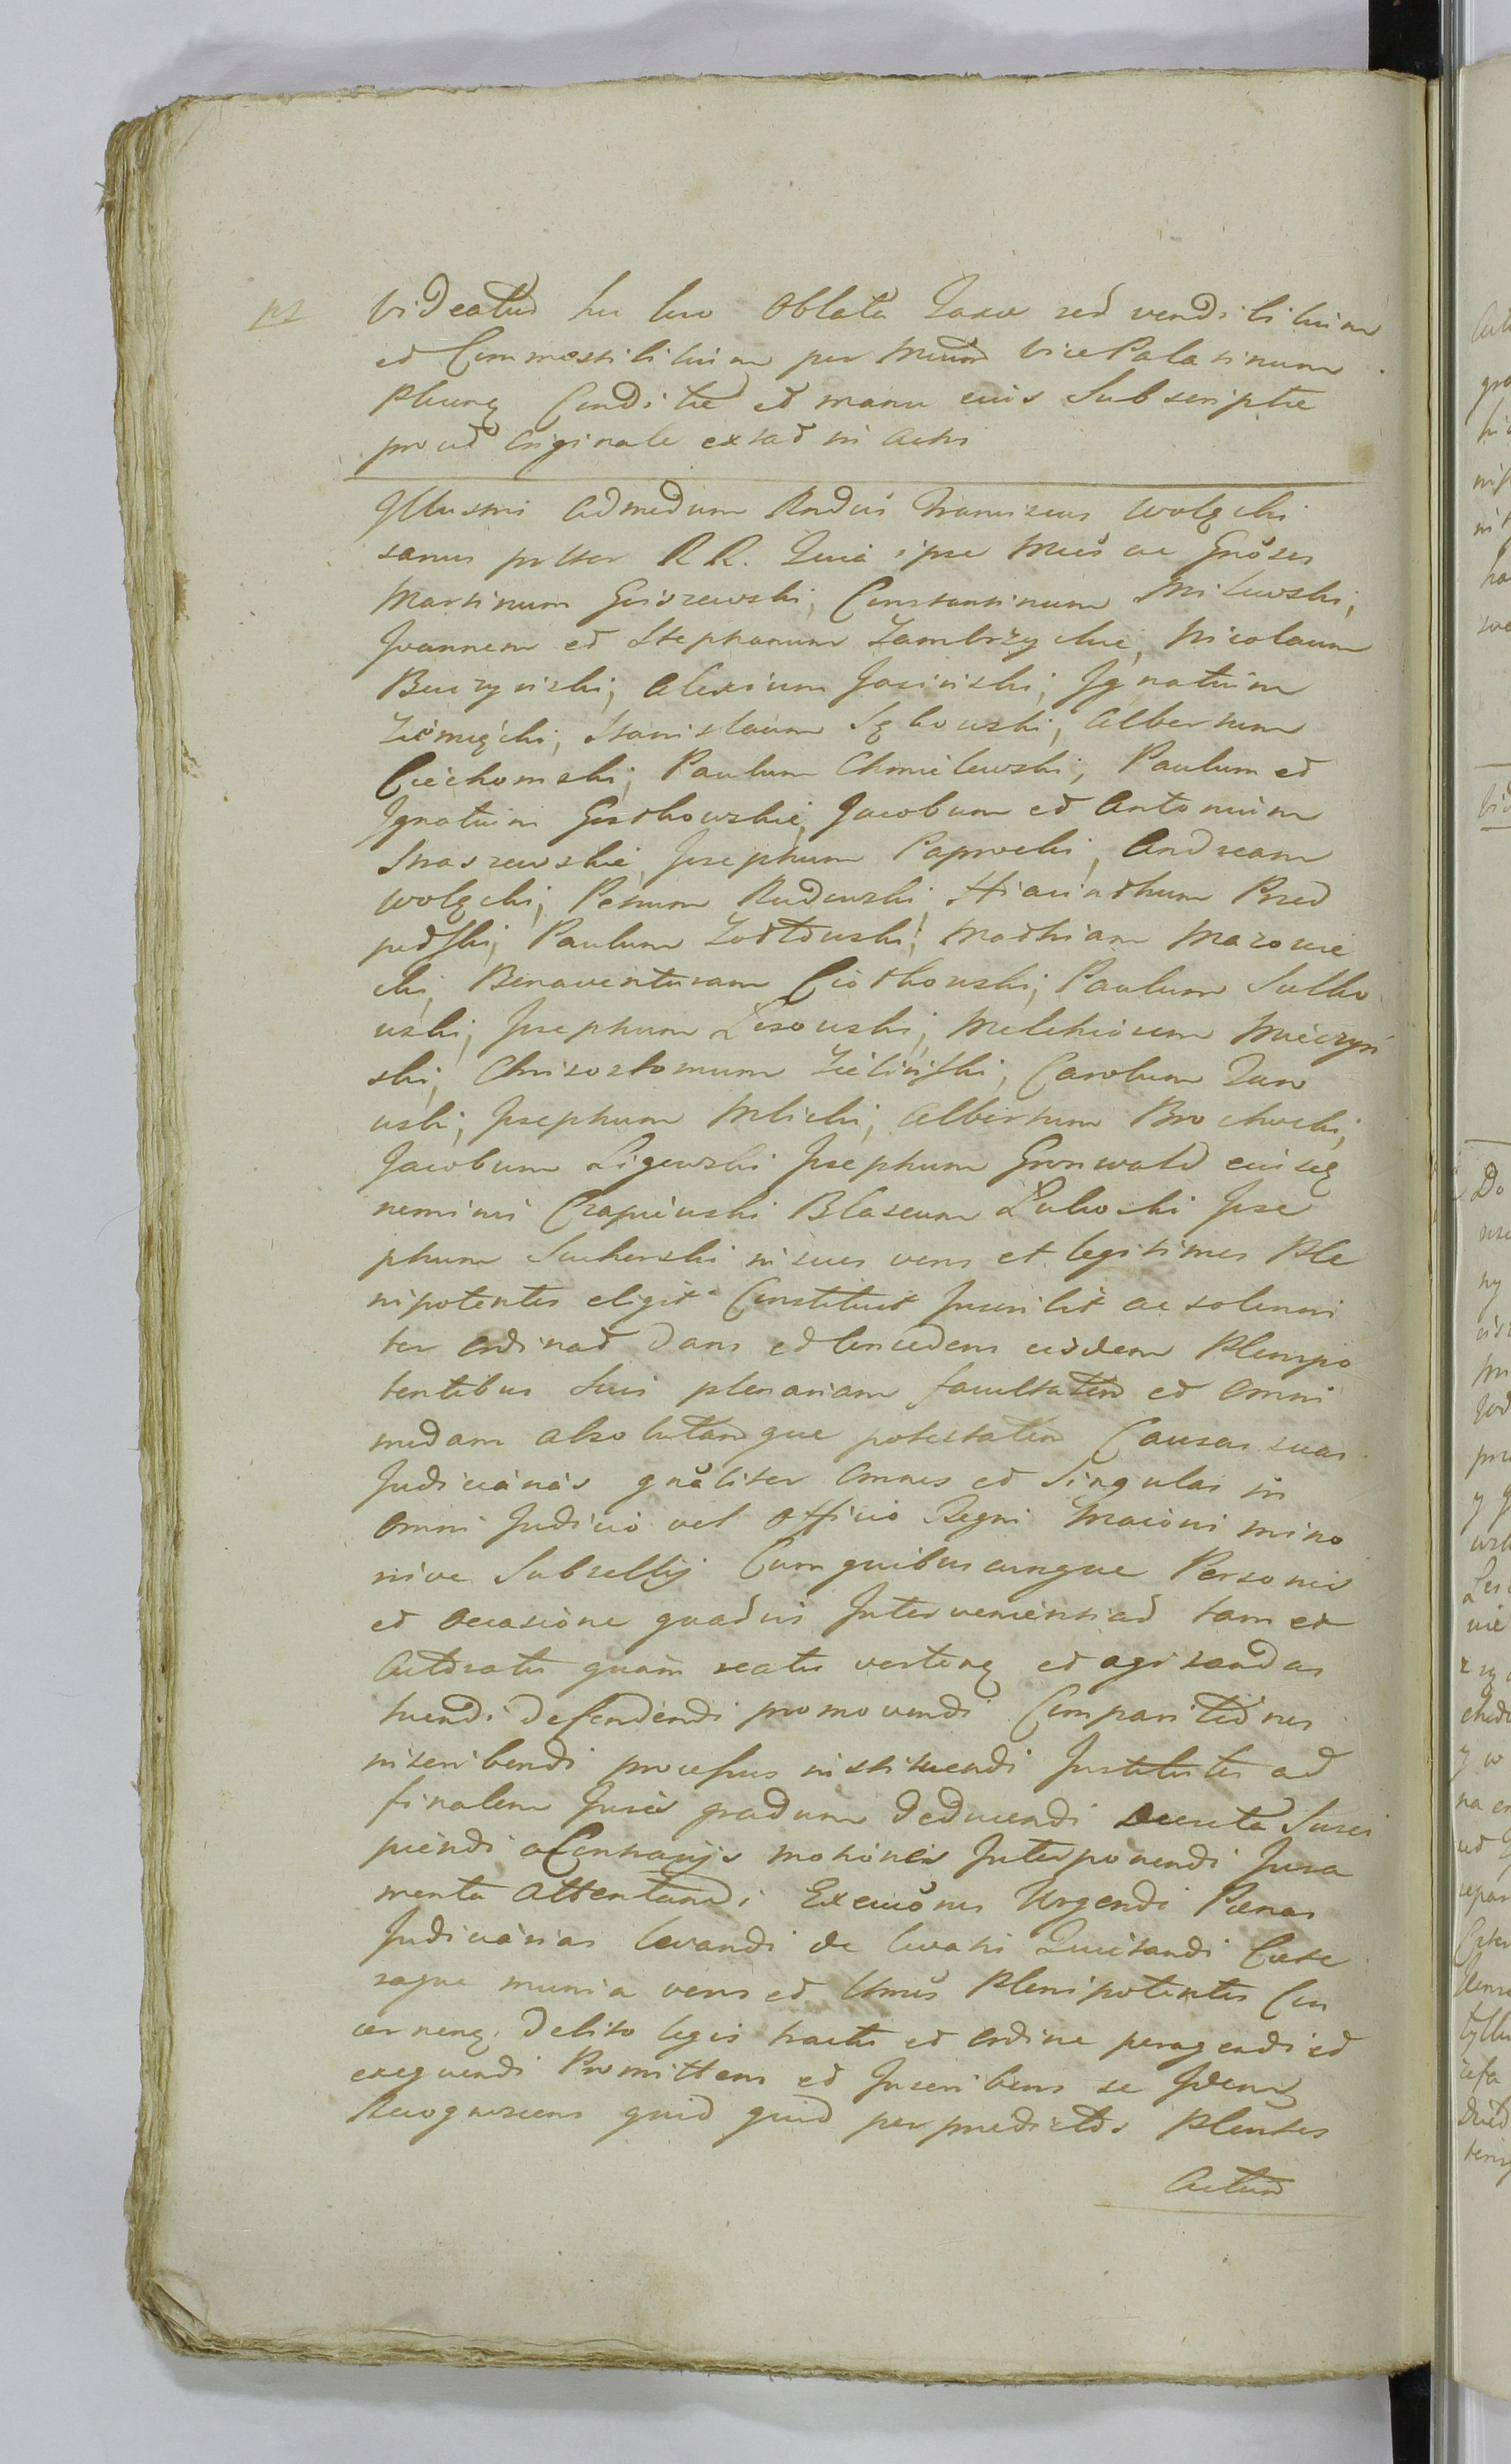 Videatur hic loco Oblata Taxae red vendilitium
et Commestilitium per Mcum Vice Palatinum
Plucng Conditae et manu eius Subscriptae
prout Originale extat in actis
Illusmi admodum Rndus Franciscus Wolęcki
sanus prtter R R. Quia ipse Mcos ac Gnosos
Martinum Goszewski, Constantinum Milewski,
Joannem et Stephanum Zambrzyckie, Nicolaum
Buczynski, Alexium Jasinski, Ignatium
Ziomęcki, Stanislaum Sękowski, Albertum
Ciechomski, Paulum Chmielewski, Paulum et
Ignatium Gostkowskie, Jacobum et Antonium
Staszewskie, Josephum Paprocki, Andream
Wolęcki, Petrum Rudowski, Hiacinthum Pred
petski, Paulum Zołtowski, Mathiam Mazowie
cki, Bonaventuram Ciołkowski, Paulum Sulko
wski, Josephum Lisowski, Melchiorem Mieczyn
ski, Chrisostomum Zielinski, Carolum Zaw
uski, Josephum Mlicki, Albertum Brochocki,
Jacobum Ligowski Josephum Gronwald cuiseq
neminis Czapiewski Blaseum Lukoski Jose
phum Suchorski in suos veros et legitimos Ple
nipotentes eligit Constituit Inscribit ac solenni
ter ordinat Dans et Concedens eisdem Plenipo
tentibus Suis plenariam facultatem et Omni
modam absolutamque potestatem Causas suas
Judiciarias gnaliter Omnes et Singulas in
Omni Judicio vel Officio Regni Maioris mino
risve Subsellij Cum quibuscunque Personis
et Occasione quavis Intervenientiad tam ex
Actoratu quam reatu verteng et agitandas
tuendi Defendendi promovendi Comparitiones
inscribendi processus instituendi Institutos ad
finalem Juris gradum deducendi Decreta Susci
piendi a Contrarijs motiones Interponendi Jura
menta Attentandi Exeuones Urgendi Paenas
Judiciarias levandi de levatis Quietandi Caete
raque munia veros et Umos Plenipotentes Con
cerneng. debito legis tractu et Ordine peragendi et
exequendi Promittens et Inscribens se Idem
Recognoscens quid quid per predictos Plentes
Actum